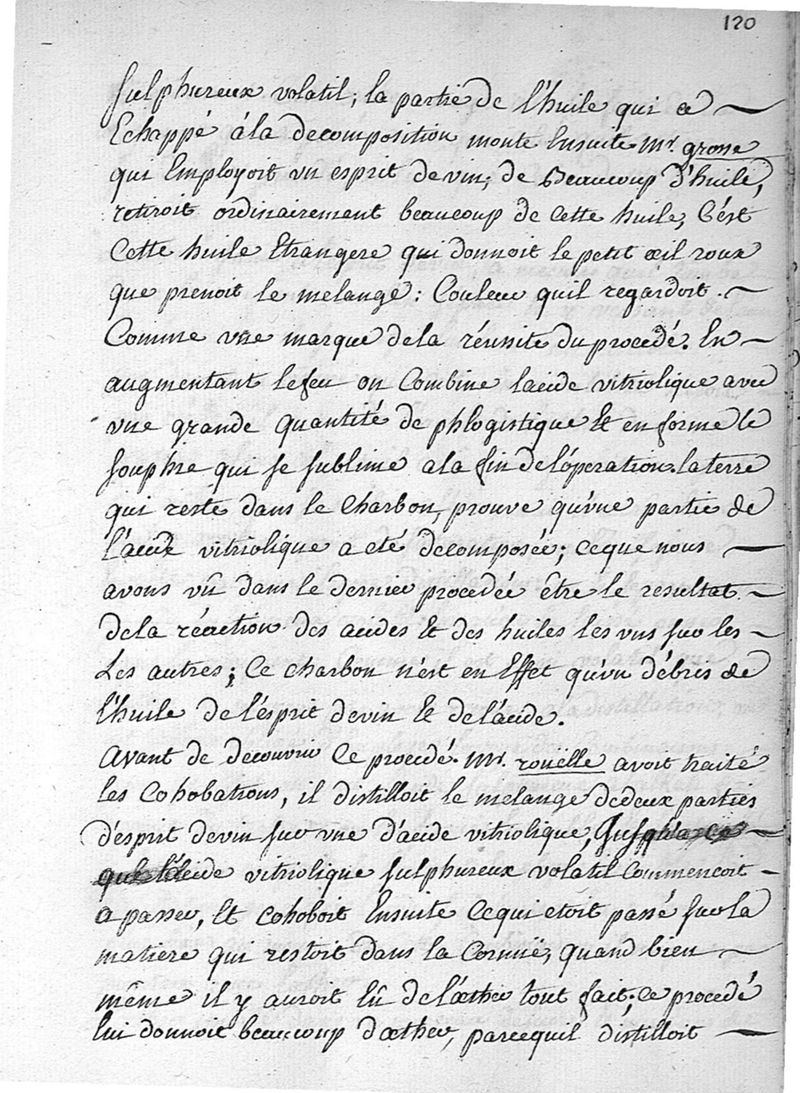 120
sulphureux volatil; la partie de l'huile qui a
Echappé à la decomposition monte Ensuite. Mr. grosse
qui Employoit un esprit de vin, de Beaucoup d'huile,
retiroit ordinairement beaucoup de cette huile, C'est
Cette huile Etrangere qui donnoit le petit œil roux
que prenoit le melange : Couleur quil regardoit.
Comme une marque de la réussite du procedé. En
augmentant le feu on Combine lacide vitriolique avec
une grande quantité de phlogistique Et en forme le
souphre qui se sublime a la fin de l'operation. la terre
qui reste dans le Charbon, prouve qu'une partie de
l'acide vitriolique a eté decomposée; ce que nous
avons vû dans le dernier procedée être le resultat.
de la réaction des acides Et des huiles les uns sur les
Les autres; Ce charbon n'est en Effet qu'un débris de
l'huile de l'ésprit de vin Et de lácide.
Avant de decouvrir Ce procedé. Mr. rouëlle avoit traité
les Cohobations, il distilloit le melange de deux parties
d'esprit de vin sur une d'acide vitriolique, Jusqu'a ce
que l'acide vitriolique sulphureux volatil Commencoit
a passer, Et Cohoboit Ensuite Ce qui etoit passé sur la
matiere qui restoit dans la Cornuë, quand bien
même il y auroit Eû de l'æther tout fait; ce procedé
lui donnoit beaucoup d'æther, parcequil distilloit